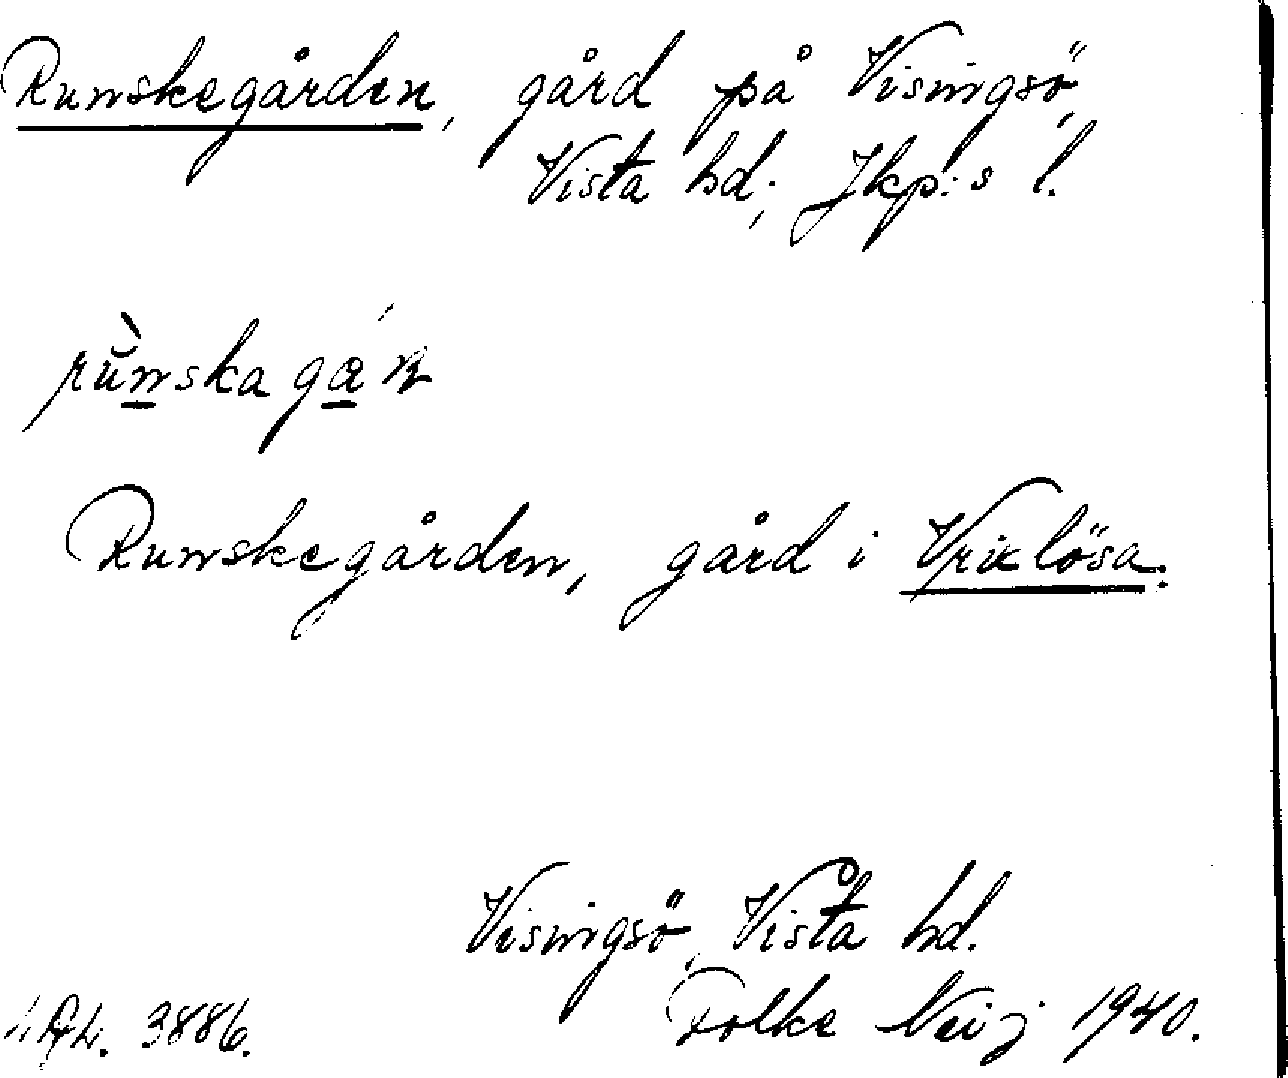 Runskegården, gård på Visingsö,
Vista hd; Jkp:s l.
rùnskagá
Runskegården, gård i Vrixlösa.
Visingsö, Vista hd.
Folke Neij 1940.
3886.